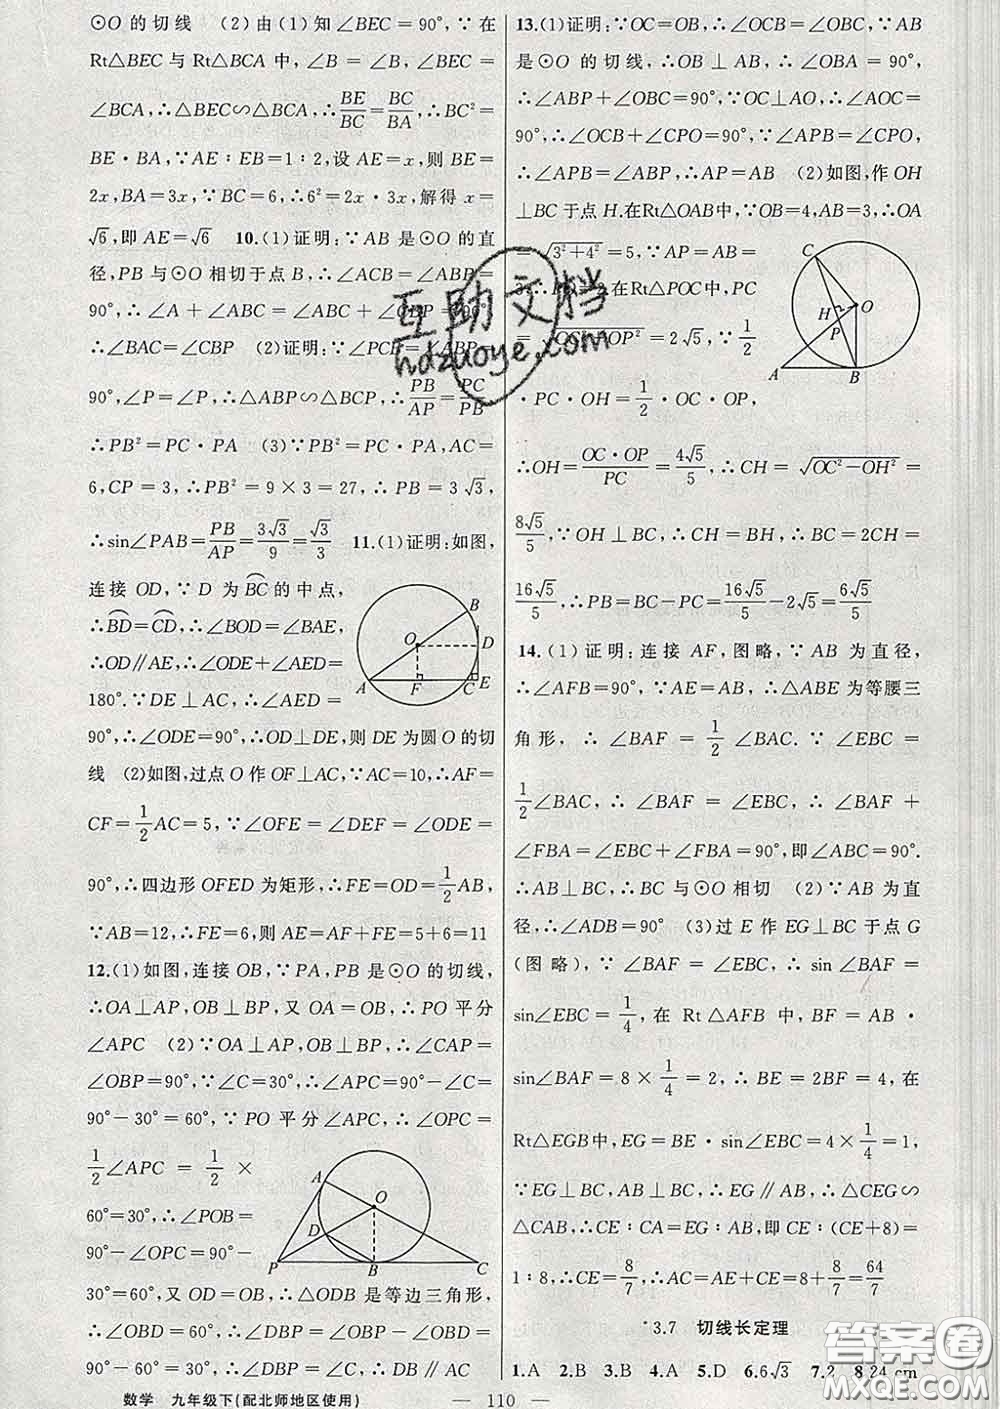 ⊙O 的切线 (2)由(1)知∠BEC=90°,∵在
Rt△BEC 与 Rt△BCA 中,∠B=∠B,∠BEC=
∠BCA,∴△BEC∽△BCA,∴BE/BC=BC/BA,∴BC²=
BE·BA,∵AE∶EB=1∶2,设 AE=x,则 BE=
2x,BA=3x,∵BC=6,∴6²=2x·3x,解得 x=
√6,即 AE=√6 10.(1)证明:∵AB 是⊙O 的直
径,PB 与⊙O 相切于点 B,∴∠ACB=∠ABP=
90°,∴∠A+∠ABC=∠ABC+∠CBP=90°,
∴∠BAC=∠CBP (2)证明:∵∠PCB=∠ABP=
90°,∠P=∠P,∴△ABP∽△BCP,∴PB/AP=PC/PB
∴PB²=PC·PA (3)∵PB²=PC·PA,AC=
6,CP=3,∴PB²=9×3=27,∴PB=3√3,
∴sin∠PAB=PB/AP=3√3/9=√3/3 11.(1)证明:如图,
连接 OD,∵D 为 BC 的中点,
∴BD=CD,∴∠BOD=∠BAE,
∴OD∥AE,∴∠ODE+∠AED=
180°.∵DE⊥AC,∴∠AED=
90°,∴∠ODE=90°,∴OD⊥DE,则 DE 为圆 O 的切
线 (2)如图,过点 O 作 OF⊥AC,∵AC=10,∴AF=
CF=1/2AC=5,∵∠OFE=∠DEF=∠ODE=
90°,∴四边形 OFED 为矩形,∴FE=OD=1/2AB,
∵AB=12,∴FE=6,则 AE=AF+FE=5+6=11
12.(1)如图,连接 OB,∵PA,PB 是⊙O 的切线,
∴OA⊥AP,OB⊥BP,又 OA=OB,∴PO 平分
∠APC (2)∵OA⊥AP,OB⊥BP,∴∠CAP=
∠OBP=90°,∵∠C=30°,∴∠APC=90°-∠C=
90°-30°=60°,∵PO 平分∠APC,∴∠OPC=
1/2∠APC=1/2×
60°=30°,∴∠POB=
90°-∠OPC=90°-
30°=60°,又 OD=OB,∴△ODB 是等边三角形,
∴∠OBD=60°,∴∠DBP=∠OBP-∠OBD=
90°-60°=30°,∴∠DBP=∠C,∴DB∥AC
B
O
D
A
F
C
E
A
O
D
P
B
C
13.(1)证明:∵OC=OB,∴∠OCB=∠OBC,∵AB
是⊙O 的切线,∴OB⊥AB,∴∠OBA=90°,
∴∠ABP+∠OBC=90°,∵OC⊥AO,∴∠AOC=
90°,∴∠OCB+∠CPO=90°,∵∠APB=∠CPO,
∴∠APB=∠ABP,∴AP=AB (2)如图,作 OH
⊥BC 于点 H.在 Rt△OAB 中,∵OB=4,AB=3,∴OA
=√3²+4²=5,∵AP=AB=
3,∴PO=2.在 Rt△POC 中,PC
=√OC²+OP²=2√5,∵1/2
·PC·OH=1/2·OC·OP,
∴OH=OC·OP/PC=4√5/5,∴CH=√OC²-OH²=
8√5/5,∵OH⊥BC,∴CH=BH,∴BC=2CH=
16√5/5,∴PB=BC-PC=16√5/5-2√5=6√5/5
C
H
O
P
A
B
14.(1)证明:连接 AF,图略,∵AB 为直径,
∴∠AFB=90°,∵AE=AB,∴△ABE 为等腰三
角形,∴∠BAF=1/2∠BAC.∵∠EBC=
1/2∠BAC,∴∠BAF=∠EBC,∴∠BAF+
∠FBA=∠EBC+∠FBA=90°,即∠ABC=90°.
∴AB⊥BC,∴BC 与⊙O 相切 (2)∵AB 为直
径,∴∠ADB=90° (3)过 E 作 EG⊥BC 于点 G
(图略),∵∠BAF=∠EBC,∴sin∠BAF=
sin∠EBC=1/4,在 Rt△AFB 中,BF=AB·
sin∠BAF=8×1/4=2,∴BE=2BF=4,在
Rt△EGB 中,EG=BE·sin∠EBC=4×1/4=1,
∵EG⊥BC,AB⊥BC,∴EG∥AB,∴△CEG∽
△CAB,∴CE∶CA=EG∶AB,即 CE∶(CE+8)=
1∶8,∴CE=8/7,∴AC=AE+CE=8+8/7=64/7
3.7 切线长定理
1.A 2.B 3.B 4.A 5.D 6.6√3 7.2 8.24 cm
数学 九年级下(配北师地区使用)
— 110 —
互助文档
hdzuoye.com
答案圈
MXQE.COM